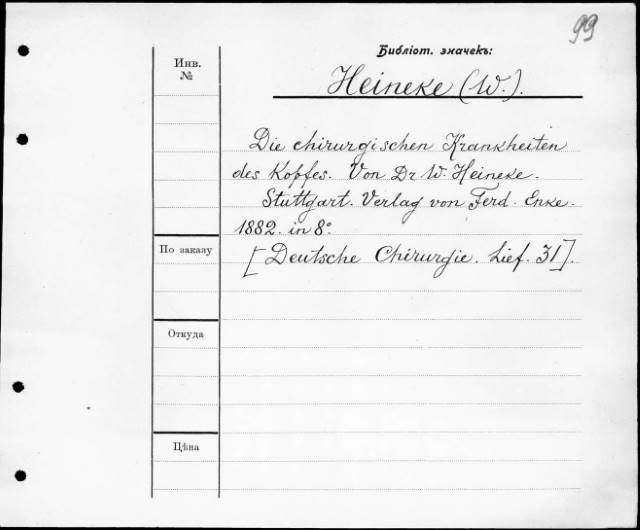 99
Библіот. значекъ:
Инв.
№
Heineke (W.).
Die chirurgischen Krankheiten
des Kopfes. Von Dr W. Heineke.
Stuttgart. Verlag von Ferd. Enke.
1882. in 8°.
По заказу
[Deutsche Chirurgie. Lief. 31].
Откуда
Цѣна